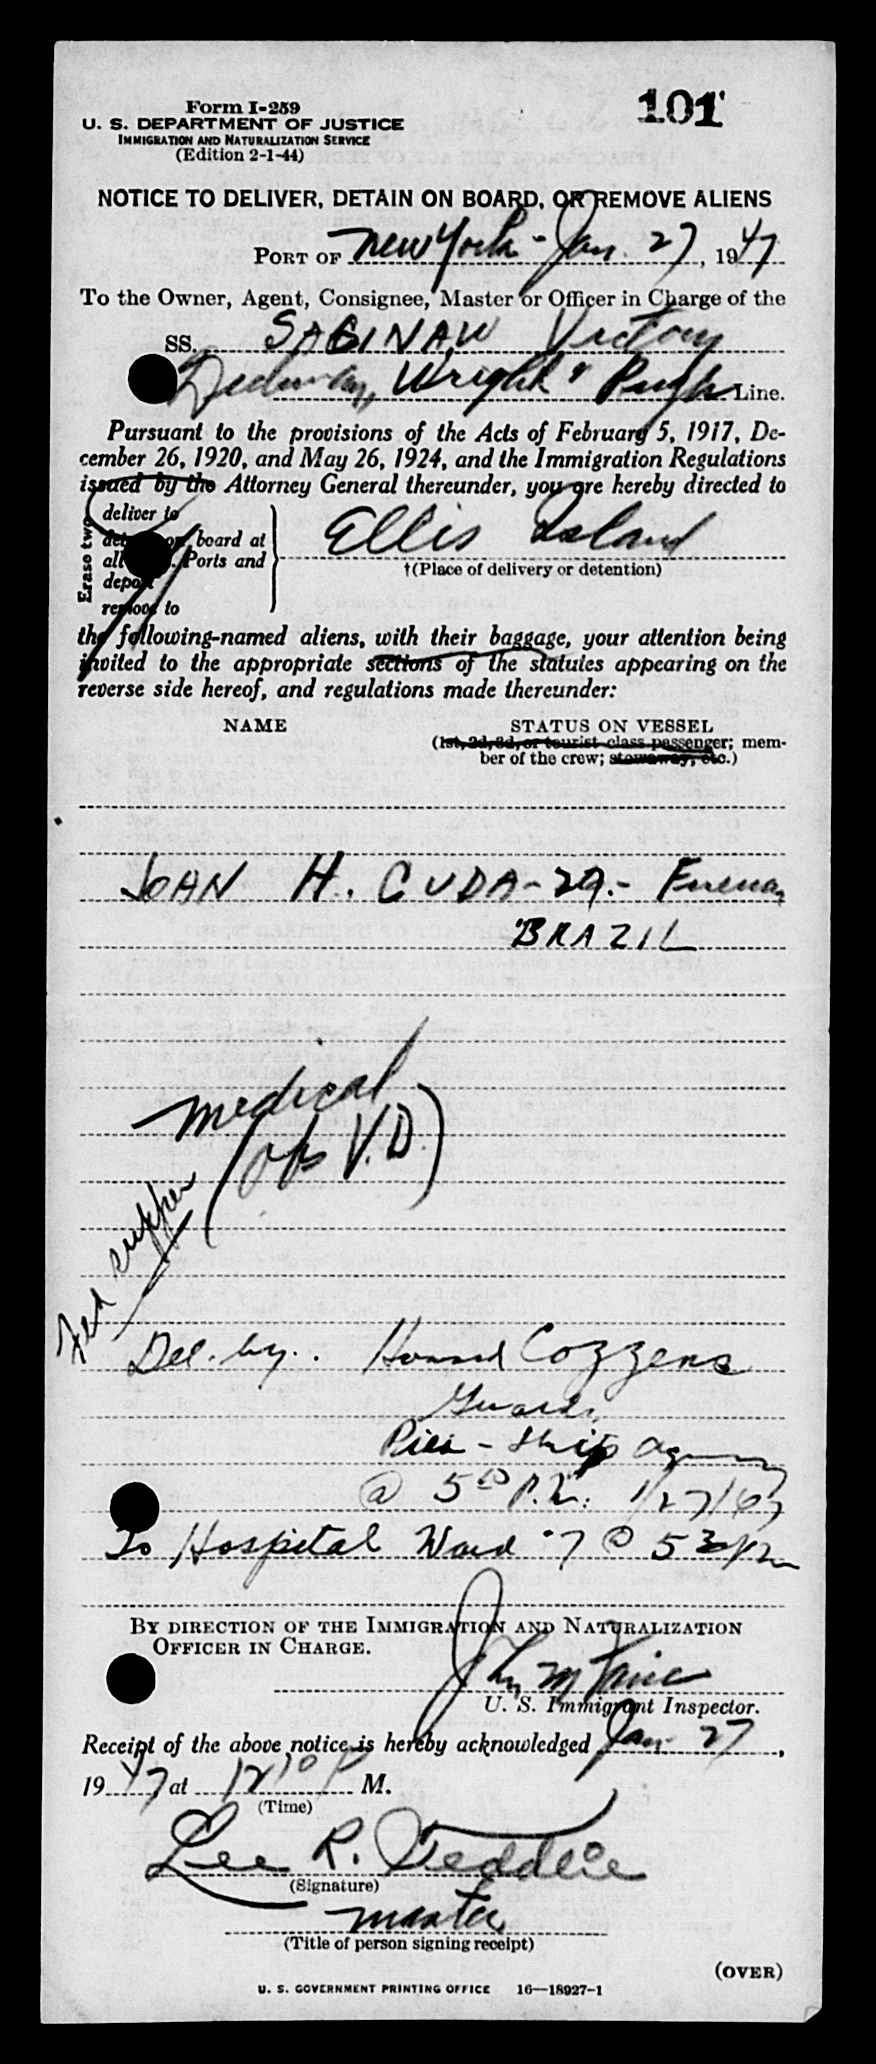 Form I-259
101
U. S. DEPARTMENT OF JUSTICE
IMMIGRATION AND NATURALIZATION SERVICE
(Edition 2-1-44)
NOTICE TO DELIVER, DETAIN ON BOARD, OR REMOVE ALIENS
PORT OF New York - Jan. 27, 1947
To the Owner, Agent, Consignee, Master or Officer in Charge of the
SS. SAGINAW Victory
Wright & Pugh Line.
Pursuant to the provisions of the Acts of February 5, 1917, De-
cember 26, 1920, and May 26, 1924, and the Immigration Regulations
issued by the Attorney General thereunder, you are hereby directed to
Erase two
deliver to
board at
all Ports and
deport
remove to
Ellis Island
†(Place of delivery or detention)
the following-named aliens, with their baggage, your attention being
invited to the appropriate sections of the statutes appearing on the
reverse side hereof, and regulations made thereunder:
NAME STATUS ON VESSEL
(1st, 2d, 3d, or tourist class passenger; mem-
ber of the crew; stowaway, etc.)
JOAN H. CUDA - 29. - Fireman
BRAZIL
medical
(ops V.D.)
Fed supper
Del. by. Howard Cozzens
Guard.
Pier - Ship Agency
@ 5 00 P.M. 1/27/47
To Hospital Ward 7 @ 5 30 PM
BY DIRECTION OF THE IMMIGRATION AND NATURALIZATION
OFFICER IN CHARGE.
U. S. Immigrant Inspector.
Receipt of the above notice is hereby acknowledged Jan 27,
1947 at 12 10 P M.
(Time)
Lee R. Feddlie
(Signature)
master
(Title of person signing receipt)
(OVER)
U. S. GOVERNMENT PRINTING OFFICE 16—18927-1